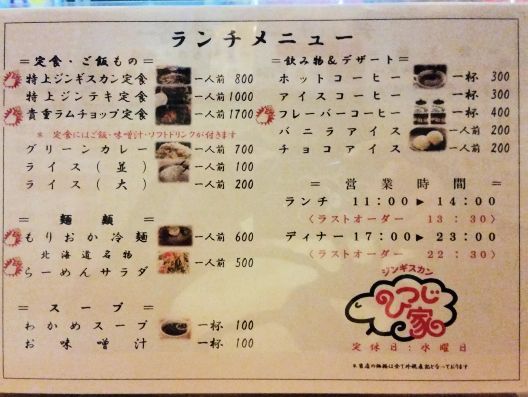 ランチメニュー
＝定食・ご飯もの＝
特上ジンギスカン定食 一人前 800
特上ジンテキ定食 一人前 1000
貴重ラムチョップ定食 一人前 1700
＊ 定食にはご飯・味噌汁・ソフトドリンクが付きます
グリーンカレー 一人前 700
ライス（並） 一人前 100
ライス（大） 一人前 200
＝ 麺 類 ＝
もりおか冷麺 一人前 600
北海道名物
らーめんサラダ 一人前 500
＝ スープ ＝
わかめスープ 一杯 100
お味噌汁 一杯 100
＝飲み物＆デザート＝
ホットコーヒー 一杯 300
アイスコーヒー 一杯 300
フレーバーコーヒー 一杯 400
バニラアイス 一人前 200
チョコアイス 一人前 200
＝ 営業時間 ＝
ランチ 11：00 → 14：00
〈ラストオーダー 13：30〉
ディナー 17：00 → 23：00
〈ラストオーダー 22：30〉
ジンギスカン
ひつじ家
定休日：水曜日